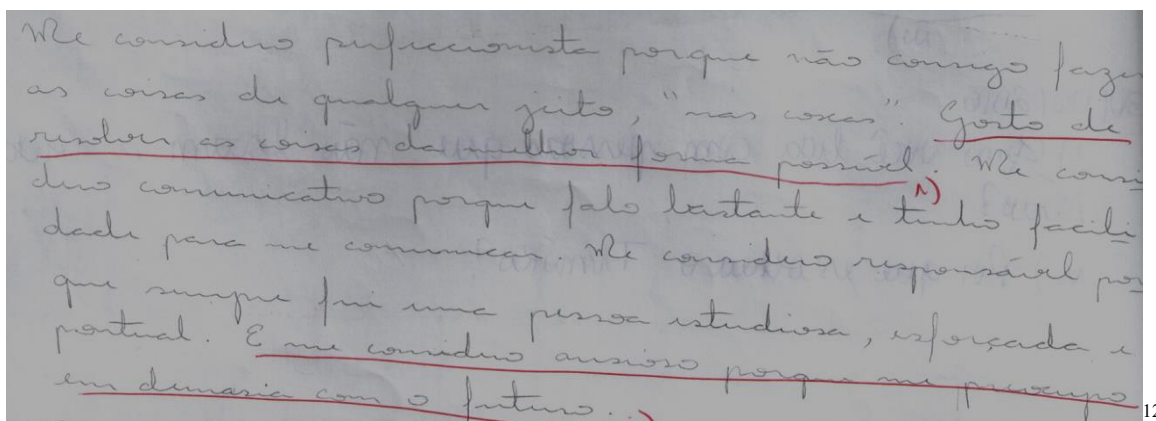 Me considero perfeccionista porque não consigo fazer
as coisas de qualquer jeito, "nas coxas". Gosto de
resolver as coisas da melhor forma possível. Me consi
dero comunicativo porque falo bastante e tenho facili
dade para me comunicar. Me considero responsável por
que sempre fui uma pessoa estudiosa, esforçada e
pontual. E me considero ansioso porque me preocupo
em demasia com o futuro.
12